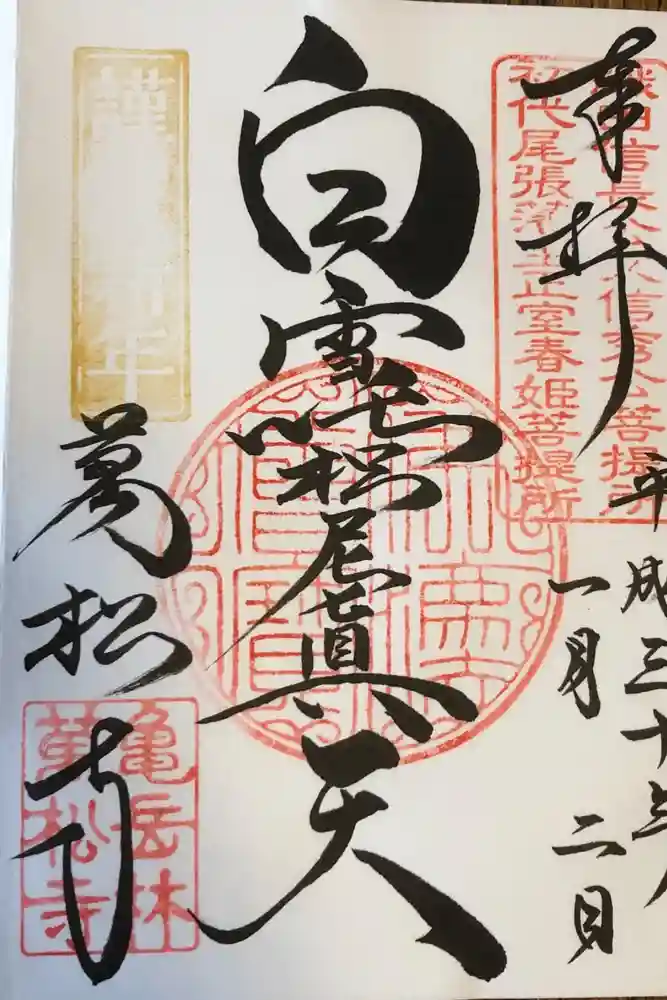 奉拝
織田信長公父信秀公菩提所
初代尾張藩主正室春姫菩提所
平成三十年
一月二日
白雪吒枳尼眞天
謹賀新年
萬松寺
亀岳林
萬松寺